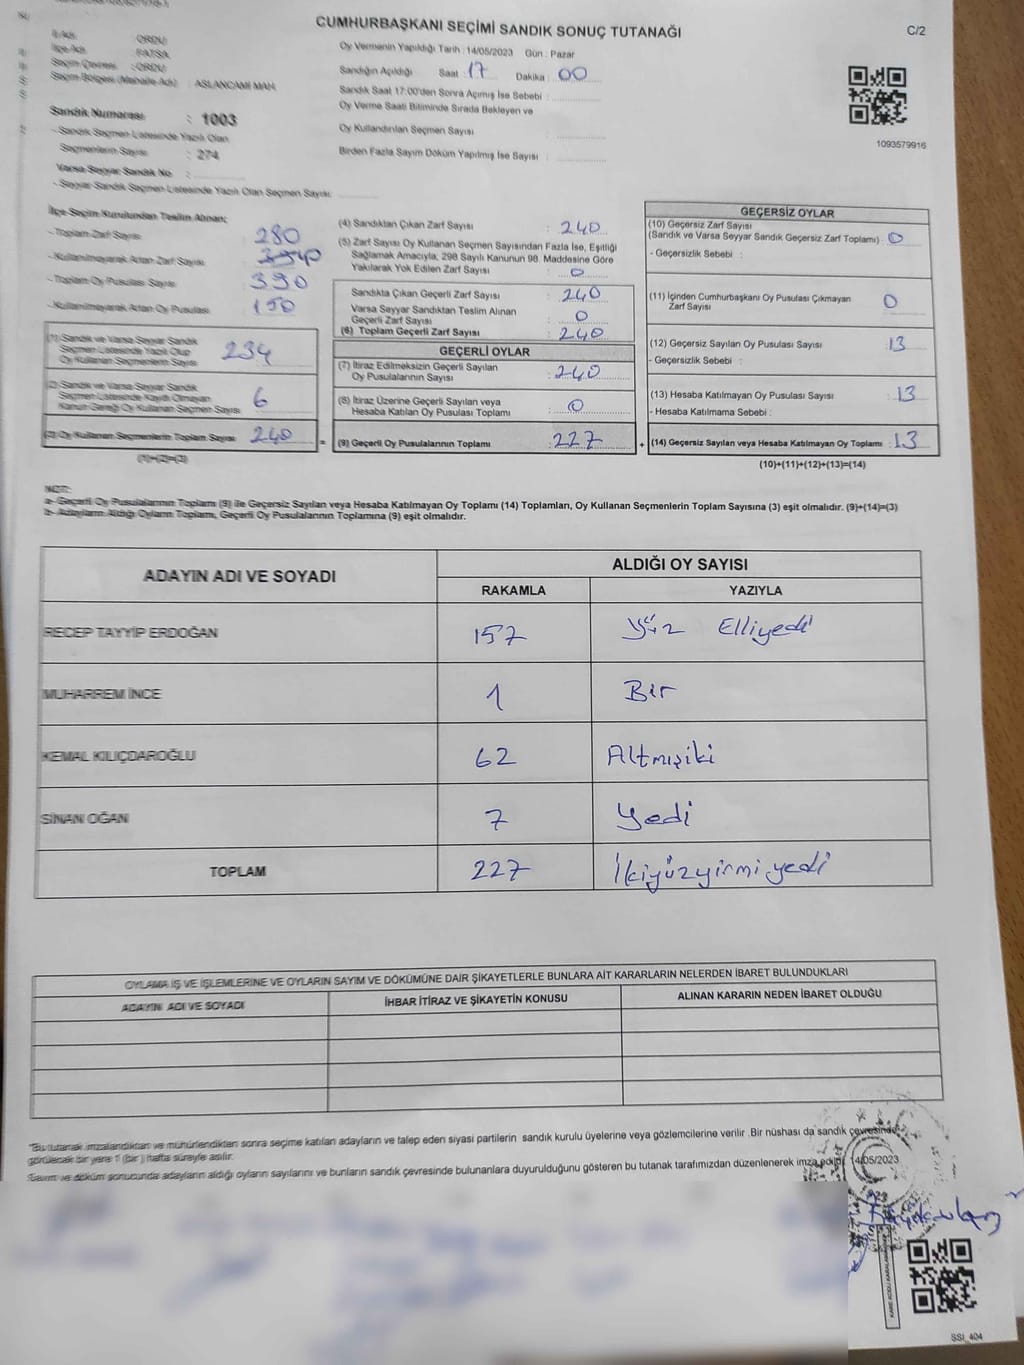 CUMHURBAŞKANI SEÇİMİ SANDIK SONUÇ TUTANAĞI
C/2
İli Adı : ORDU
İlçe Adı : FATSA
Seçim Çevresi : ORDU
Seçim Bölgesi (Mahalle Adı) : ASLANCAMİ MAH.
Oy Vermenin Yapıldığı Tarih : 14/05/2023 Gün : Pazar
Sandığın Açıldığı Saat : 17 Dakika : 00
Sandık Saat 17:00'den Sonra Açımış İse Sebebi :
Oy Verme Saati Bitiminde Sırada Bekleyen ve
Oy Kullandırılan Seçmen Sayısı :
Birden Fazla Sayım Döküm Yapılmış İse Sayısı :
1093579916
Sandık Numarası : 1003
- Sandık Seçmen Listesinde Yazılı Olan
Seçmenlerin Sayısı : 274
Varsa Seyyar Sandık No :
- Seyyar Sandık Seçmen Listesinde Yazılı Olan Seçmen Sayısı:
İlçe Seçim Kurulundan Teslim Alınan;
- Toplam Zarf Sayısı : 280
- Kullanılmayarak Artan Zarf Sayısı :
- Toplam Oy Pusulası Sayısı : 390
- Kullanılmayarak Artan Oy Pusulası : 150
(1) Sandık ve Varsa Seyyar Sandık
Seçmen Listesinde Yazılı Olup
Oy Kullanan Seçmenlerin Sayısı : 234
(2) Sandık ve Varsa Seyyar Sandık
Seçmen Listesinde Kayıtlı Olmayan
Kanun Gereği Oy Kullanan Seçmen Sayısı : 6
(3) Oy Kullanan Seçmenlerin Toplam Sayısı : 240
(1)+(2)=(3)
=
(4) Sandıktan Çıkan Zarf Sayısı : 240
(5) Zarf Sayısı Oy Kullanan Seçmen Sayısından Fazla İse, Eşitliği
Sağlamak Amacıyla, 298 Sayılı Kanunun 98. Maddesine Göre
Yakılarak Yok Edilen Zarf Sayısı : 0
Sandıkta Çıkan Geçerli Zarf Sayısı : 240
Varsa Seyyar Sandıktan Teslim Alınan
Geçerli Zarf Sayısı : 0
(6) Toplam Geçerli Zarf Sayısı : 240
GEÇERLİ OYLAR
(7) İtiraz Edilmeksizin Geçerli Sayılan
Oy Pusulalarının Sayısı : 240
(8) İtiraz Üzerine Geçerli Sayılan veya
Hesaba Katılan Oy Pusulası Toplamı : 0
(9) Geçerli Oy Pusulalarının Toplamı : 227
+
GEÇERSİZ OYLAR
(10) Geçersiz Zarf Sayısı
(Sandık ve Varsa Seyyar Sandık Geçersiz Zarf Toplamı) : 0
- Geçersizlik Sebebi :
(11) İçinden Cumhurbaşkanı Oy Pusulası Çıkmayan
Zarf Sayısı : 0
(12) Geçersiz Sayılan Oy Pusulası Sayısı : 13
- Geçersizlik Sebebi :
(13) Hesaba Katılmayan Oy Pusulası Sayısı : 13
- Hesaba Katılmama Sebebi :
(14) Geçersiz Sayılan veya Hesaba Katılmayan Oy Toplamı : 13
(10)+(11)+(12)+(13)=(14)
NOT:
a- Geçerli Oy Pusulalarının Toplamı (9) ile Geçersiz Sayılan veya Hesaba Katılmayan Oy Toplamı (14) Toplamları, Oy Kullanan Seçmenlerin Toplam Sayısına (3) eşit olmalıdır. (9)+(14)=(3)
b- Adayların Aldığı Oyların Toplamı, Geçerli Oy Pusulalarının Toplamına (9) eşit olmalıdır.
ADAYIN ADI VE SOYADI ALDIĞI OY SAYISI
RAKAMLA YAZIYLA
RECEP TAYYİP ERDOĞAN 157 Yüz Elliyedi
MUHARREM İNCE 1 Bir
KEMAL KILIÇDAROĞLU 62 Altmışiki
SİNAN OĞAN 7 Yedi
TOPLAM 227 İkiyüzyirmiyedi
OYLAMA İŞ VE İŞLEMLERİNE VE OYLARIN SAYIM VE DÖKÜMÜNE DAİR ŞİKAYETLERLE BUNLARA AİT KARARLARIN NELERDEN İBARET BULUNDUKLARI
ADAYIN ADI VE SOYADI İHBAR İTİRAZ VE ŞİKAYETİN KONUSU ALINAN KARARIN NEDEN İBARET OLDUĞU
*Bu tutanak imzalandıktan ve mühürlendikten sonra seçime katılan adayların ve talep eden siyasi partilerin sandık kurulu üyelerine veya gözlemcilerine verilir .Bir nüshası da sandık çevresinde
görülecek bir yere 1 (bir ) hafta süreyle asılır.
Sayım ve döküm sonucunda adayların aldığı oyların sayılarını ve bunların sandık çevresinde bulunanlara duyurulduğunu gösteren bu tutanak tarafımızdan düzenlenerek imza edildi. 14/05/2023
SSI_404